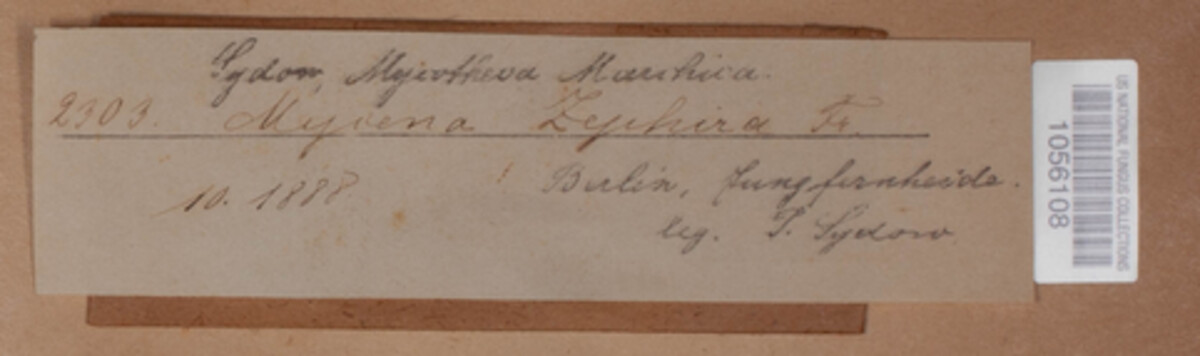 Sydow, Mycotheca Marchica.
2303. Mycena Zephira Fr.
10. 1888 ! Berlin, Jungfernheide.
leg. P. Sydow
US NATIONAL FUNGUS COLLECTIONS
1056108